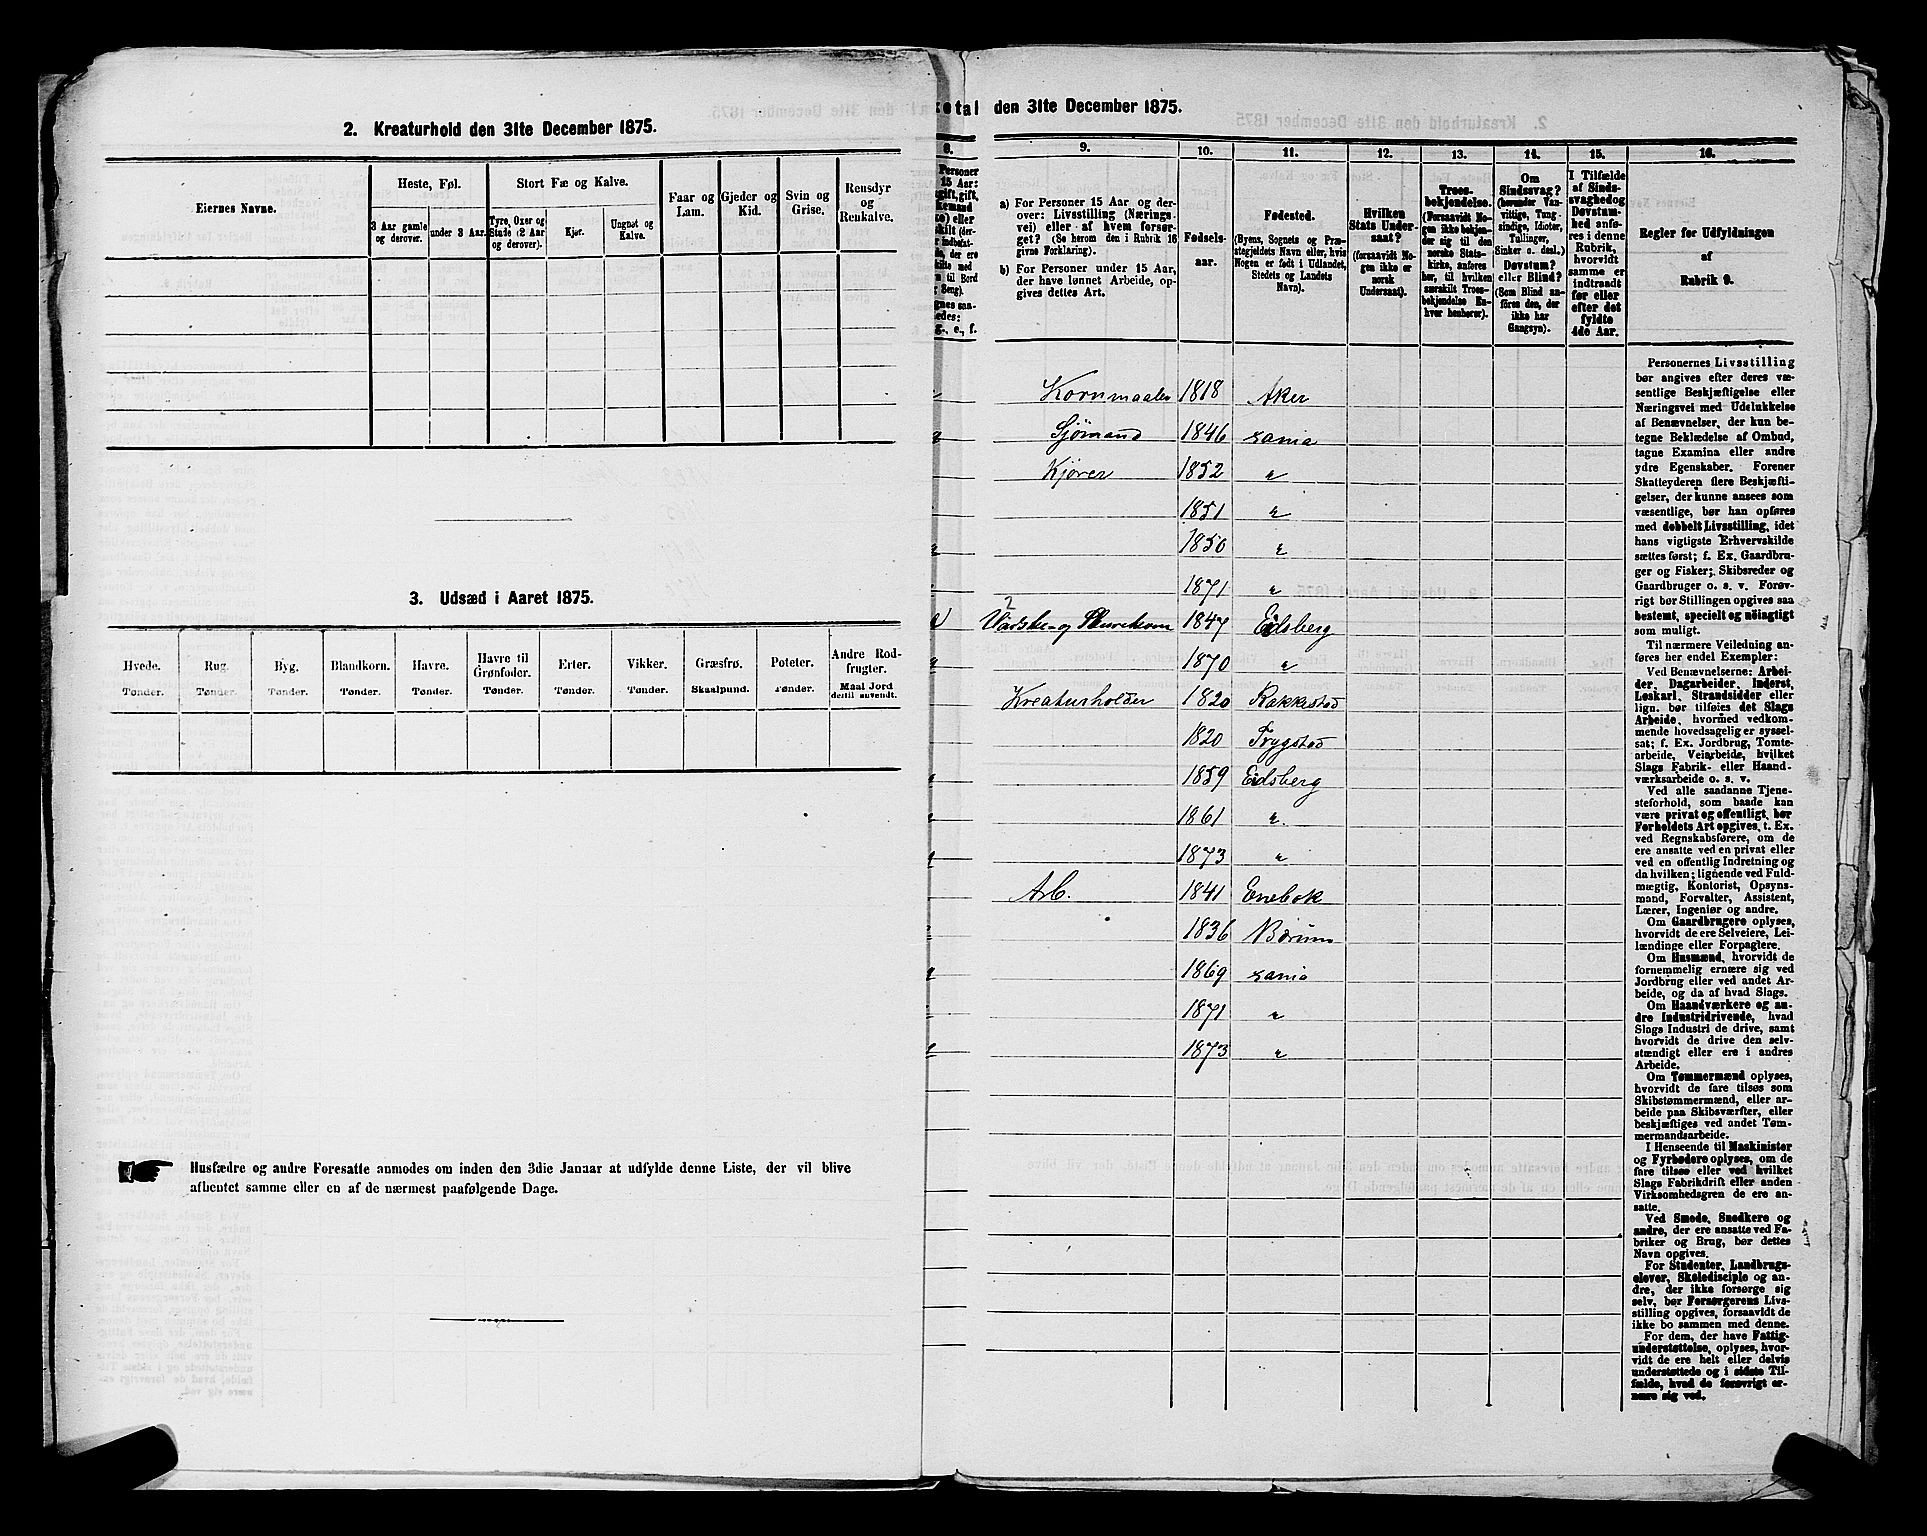 2. Kreaturhold den 31te December 1875.
Eiernes Navne.
Heste, Føl.
3 Aar gamle og derover.
under 3 Aar.
Stort Fæ og Kalve.
Tyre, Oxer og Stude (2 Aar og derover).
Kjør.
Ungnøt og Kalve.
Faar og Lam.
Gjeder og Kid.
Svin og Grise.
Rensdyr og Renkalve.
3. Udsæd i Aaret 1875.
Hvede. Rug. Byg. Blandkorn. Havre. Havre til Grønfoder. Erter. Vikker. Græsfrø. Poteter. Andre Rodfrugter.
Tønder. Tønder. Tønder. Tønder. Tønder. Tønder. Tønder. Tønder. Skaalpund. Tønder. Maal Jord dertil anvendt.
Husfædre og andre Foresatte anmodes om inden den 3die Januar at udfylde denne Liste, der vil blive
afhentet samme eller en af de nærmest paafølgende Dage.
ketal den 31te December 1875.
8. 9. 10. 11. 12. 13. 14. 15. 16.
a) For Personer 15 Aar og der-
over: Livsstilling (Nærings-
vei) eller af hvem forsør-
get? (Se herom den i Rubrik 16
givne Forklaring).
b) For Personer under 15 Aar,
der have lønnet Arbeide, op-
gives dettes Art.
Fødsels-
aar.
Fødested.
(Byens, Sognets og Præ-
stegjeldets Navn eller, hvis
Nogen er født i Udlandet,
Stedets og Landets
Navn).
Hvilken
Stats Under-
saat?
(forsaavidt No-
gen ikke er
norsk
Undersaat).
Troes-
bekjendelse.
(Forsaavidt No-
gen ikke bekjen-
der sig til den
norske Stats-
kirke, anføres
her, til hvilken
særskilt Troes-
bekjendelse En-
hver henhører).
Om
Sindssvag?
(herunder Van-
vittige, Tung-
sindige, Idioter,
Tullinger,
Sinker o. desl.)
Døvstum?
eller Blind?
(Som Blind an-
føres den, der
ikke har
Gangsyn).
I Tilfælde
af Sinds-
svaghed og
Døvstum-
hed anfø-
res i denne
Rubrik,
hvorvidt
samme er
indtraadt
før eller
efter det
fyldte
4de Aar.
Regler for Udfyldningen
af
Rubrik 9.
Kornmaaler 1818 Aker
Sjømand 1846 xania
Kjører 1852 "
1851 "
1850 "
1871 "
Vadske- og Skurekone 1847 Eidsberg
1870 "
Kreaturholder 1820 Rakkestad
1820 Trygstad
1859 Eidsberg
1861 "
1873 "
Arb. 1841 Enebak
1836 Bærum
1869 xania
1871 "
1873 "
Personernes Livsstilling
bør angives efter deres væ-
sentlige Beskjæftigelse eller
Næringsvei med Udelukkelse
af Benævnelser, der kun be-
tegne Beklædelse af Ombud,
tagne Examina eller andre
ydre Egenskaber. Forener
Skatteyderen flere Beskjæfti-
gelser, der kunne ansees som
væsentlige, bør han opføres
med dobbelt Livsstilling, idet
hans vigtigste Erhvervskilde
sættes først; f. Ex. Gaardbru-
ger og Fisker; Skibsreder og
Gaardbruger o. s. v. Forøv-
rigt bør Stillingen opgives saa
bestemt, specielt og nøiagtigt
som muligt.
Til nærmere Veiledning an-
føres her endel Exempler:
Ved Benævnelserne: Arbei-
der, Dagarbeider, Inderst,
Løskarl, Strandsidder eller
lign. bør tilføies det Slags
Arbeide, hvormed vedkom-
mende hovedsagelig er syssel-
sat; f. Ex. Jordbrug, Tomte-
arbeide, Veiarbeide, hvilket
Slags Fabrik- eller Haand-
værksarbeide o. s. v.
Ved alle saadanne Tjene-
steforhold, som baade kan
være privat og offentligt, bør
Forholdets Art opgives, t. Ex.
ved Regnskabsførere, om de
ere ansatte ved en privat eller
ved en offentlig Indretning og
da hvilken; lignende ved Fuld-
mægtig, Kontorist, Opsyns-
mand, Forvalter, Assistent,
Lærer, Ingeniør og andre.
Om Gaardbrugere oplyses,
hvorvidt de ere Selveiere, Lei-
lændinge eller Forpagtere.
Om Husmænd, hvorvidt de
fornemmelig ernære sig ved
Jordbrug eller ved andet Ar-
beide, og da af hvad Slags.
Om Haandværkere og an-
dre Industridrivende, hvad
Slags Industri de drive, samt
hvorvidt de drive den selv-
stændigt eller ere i andres
Arbeide.
Om Tømmermænd oplyses,
hvorvidt de fare tilsøs som
Skibstømmermænd, eller ar-
beide paa Skibsværfter, eller
beskjæftiges ved andet Tøm-
mermandsarbeide.
I Henseende til Maskinister
og Fyrbødere oplyses, om de
fare tilsøs eller ved hvilket
Slags Fabrikdrift eller anden
Virksomhedsgren de ere an-
satte.
Ved Smede, Snedkere og
andre, der ere ansatte ved Fa-
briker og Brug, bør dettes
Navn opgives.
For Studenter, Landbrugs-
elever, Skoledisciple og an-
dre, der ikke forsørge sig
selv, bør Forsørgerens Livs-
stilling opgives, forsaavidt de
ikke bo sammen med denne.
For dem, der have Fattig-
understøttelse, oplyses, hvor-
vidt de ere helt eller delvis
understøttede og i sidste Til-
fælde, hvad de forøvrigt er-
nære sig ved.